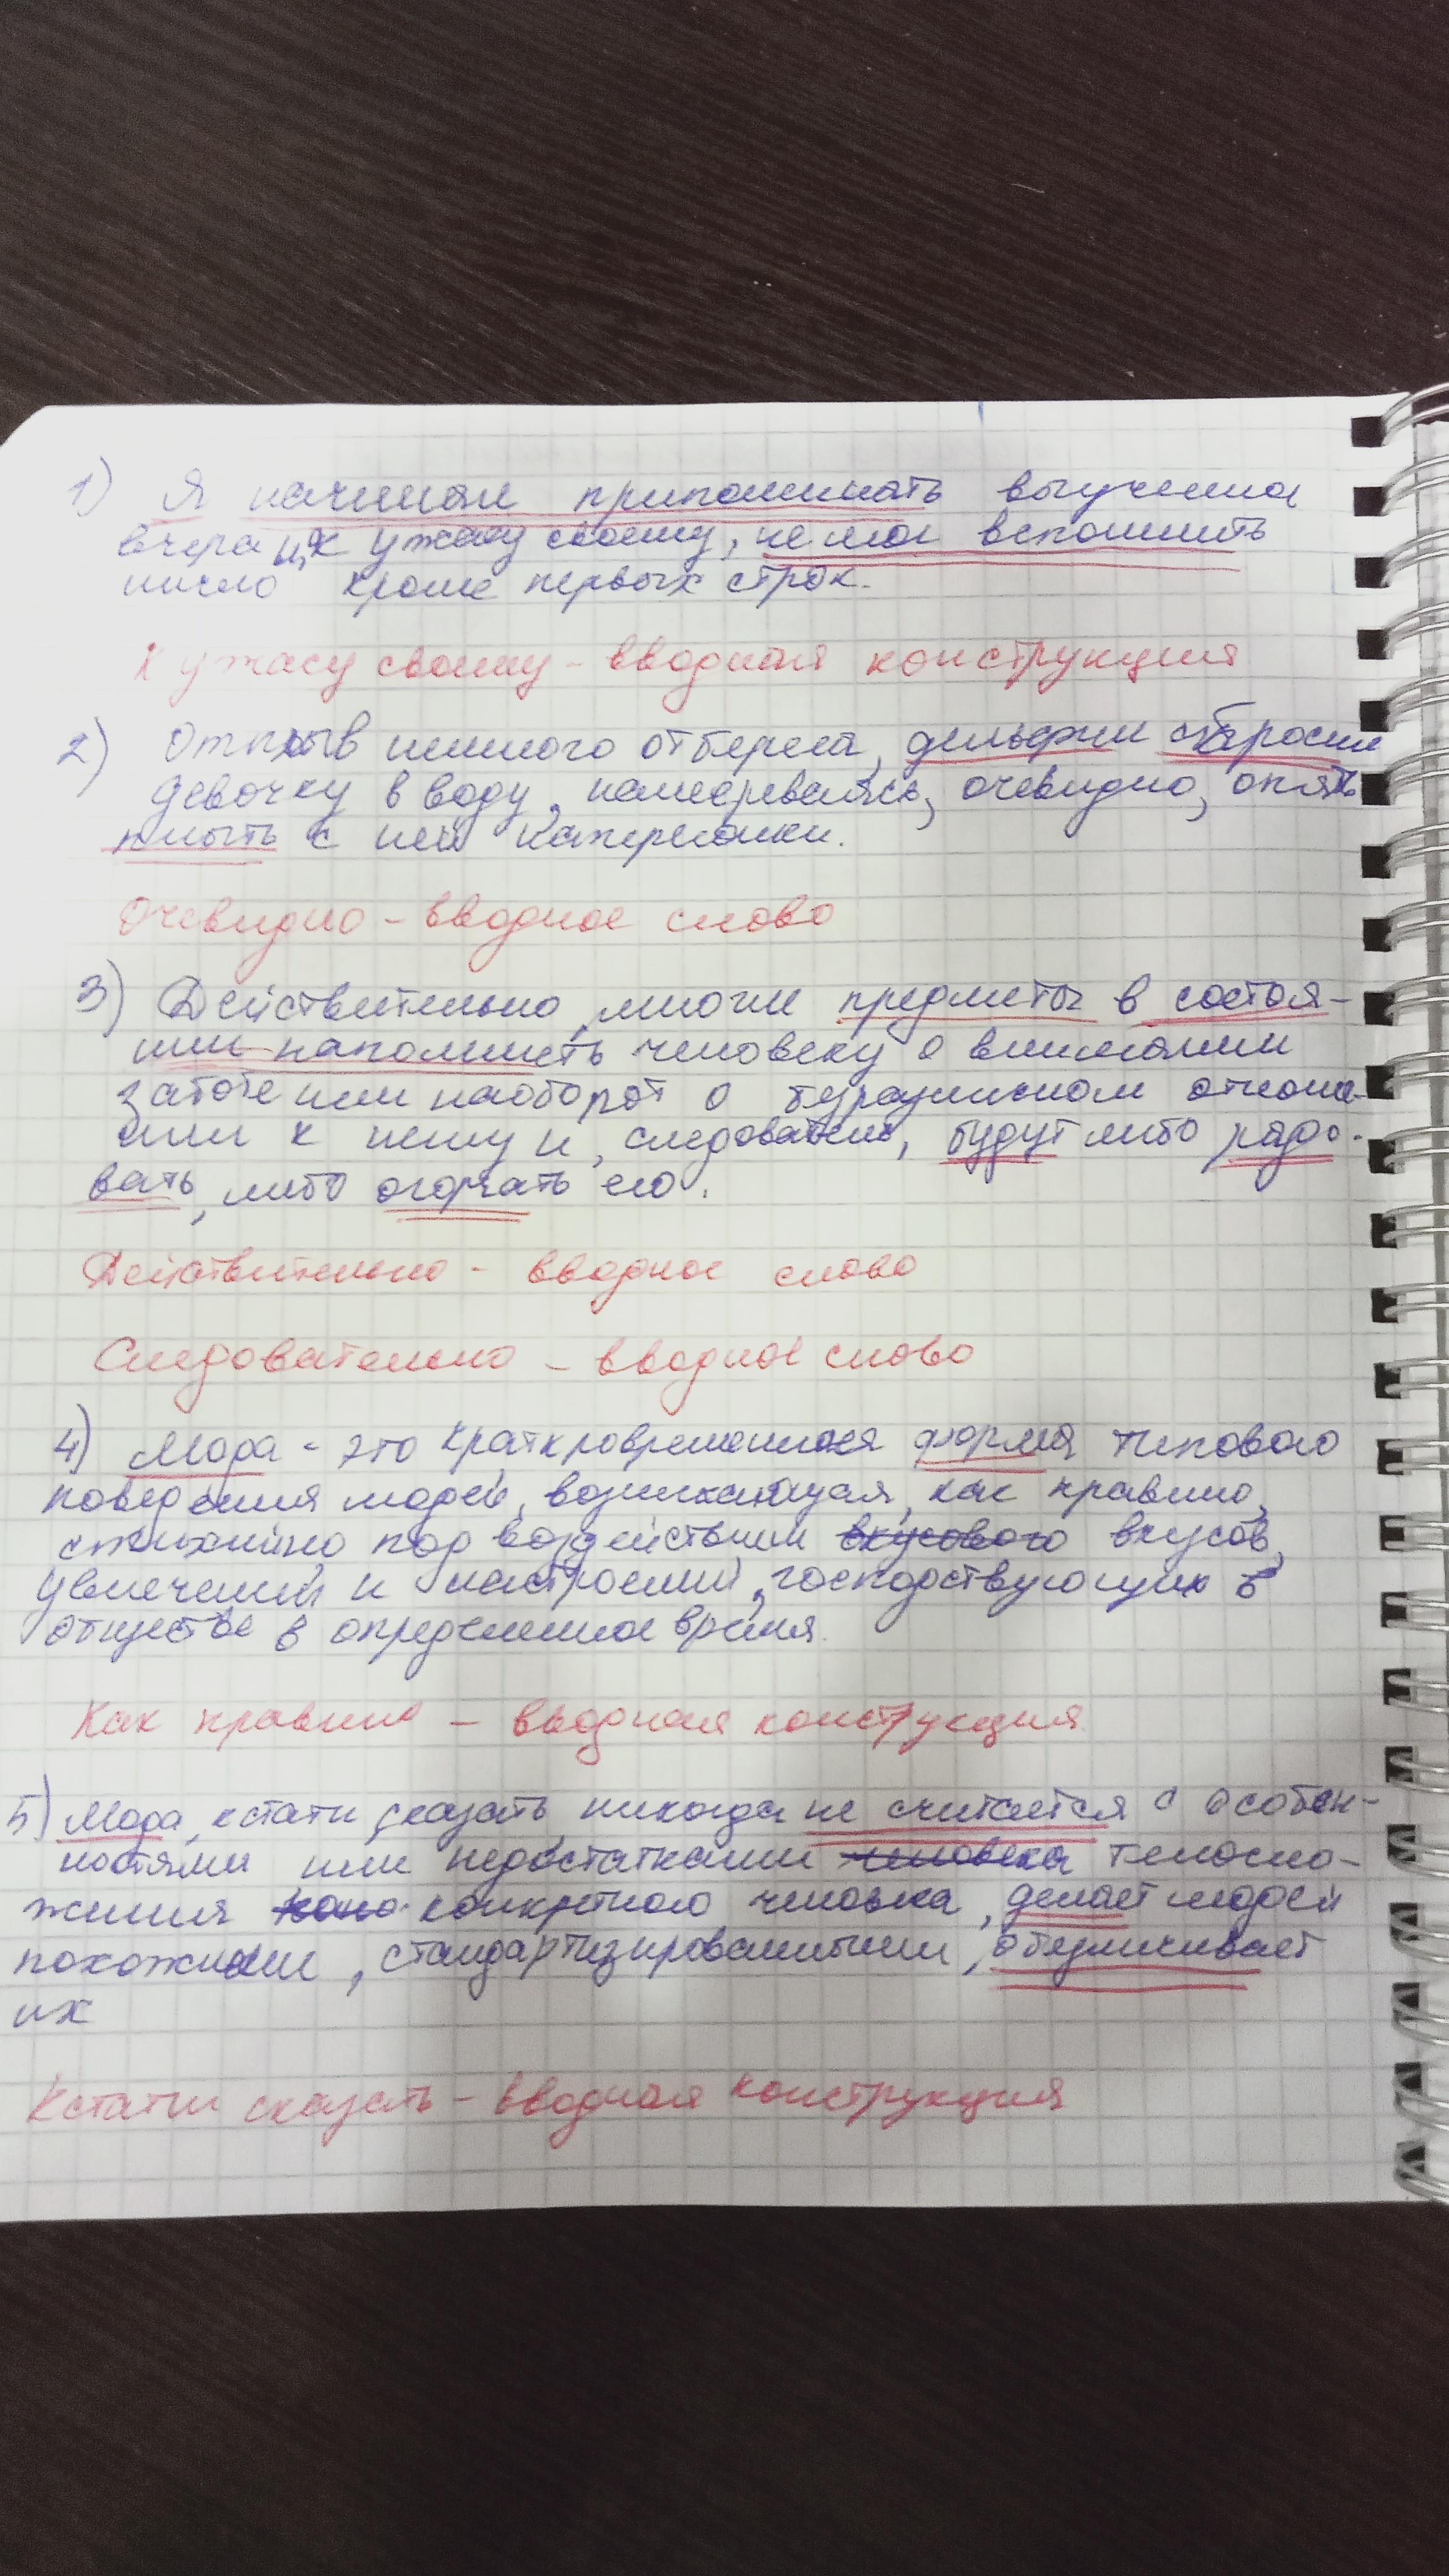 1) Я начинал припоминать выученное
вчера и, к ужасу своему, не мог вспомнить
ничего кроме первых строк.
К ужасу своему - вводная конструкция
2) Отплыв немного от берега, дельфин сбросил
девочку в воду, намереваясь, очевидно, опять
плыть с ней наперегонки.
Очевидно - вводное слово
3) Действительно, многие предметы в состоя-
нии напомнить человеку о внимании
заботе или наоборот о безразличном отноше-
нии к нему и, следовательно, будут либо радо-
вать, либо огорчать его.
Действительно - вводное слово
Следовательно - вводное слово
4) Мода - это кратковременная форма типового
поведения людей, возникающая, как правило,
стихийно под воздействием вкусового вкусов,
увлечений и настроений, господствующих в
обществе в определенное время.
Как правило - вводная конструкция
5) Мода, кстати сказать, никогда не считается с особен-
ностями или недостатками человека телосло-
жения конкретного человека, делает людей
похожими, стандартизированными, обезличивает
их
Кстати сказать - вводная конструкция